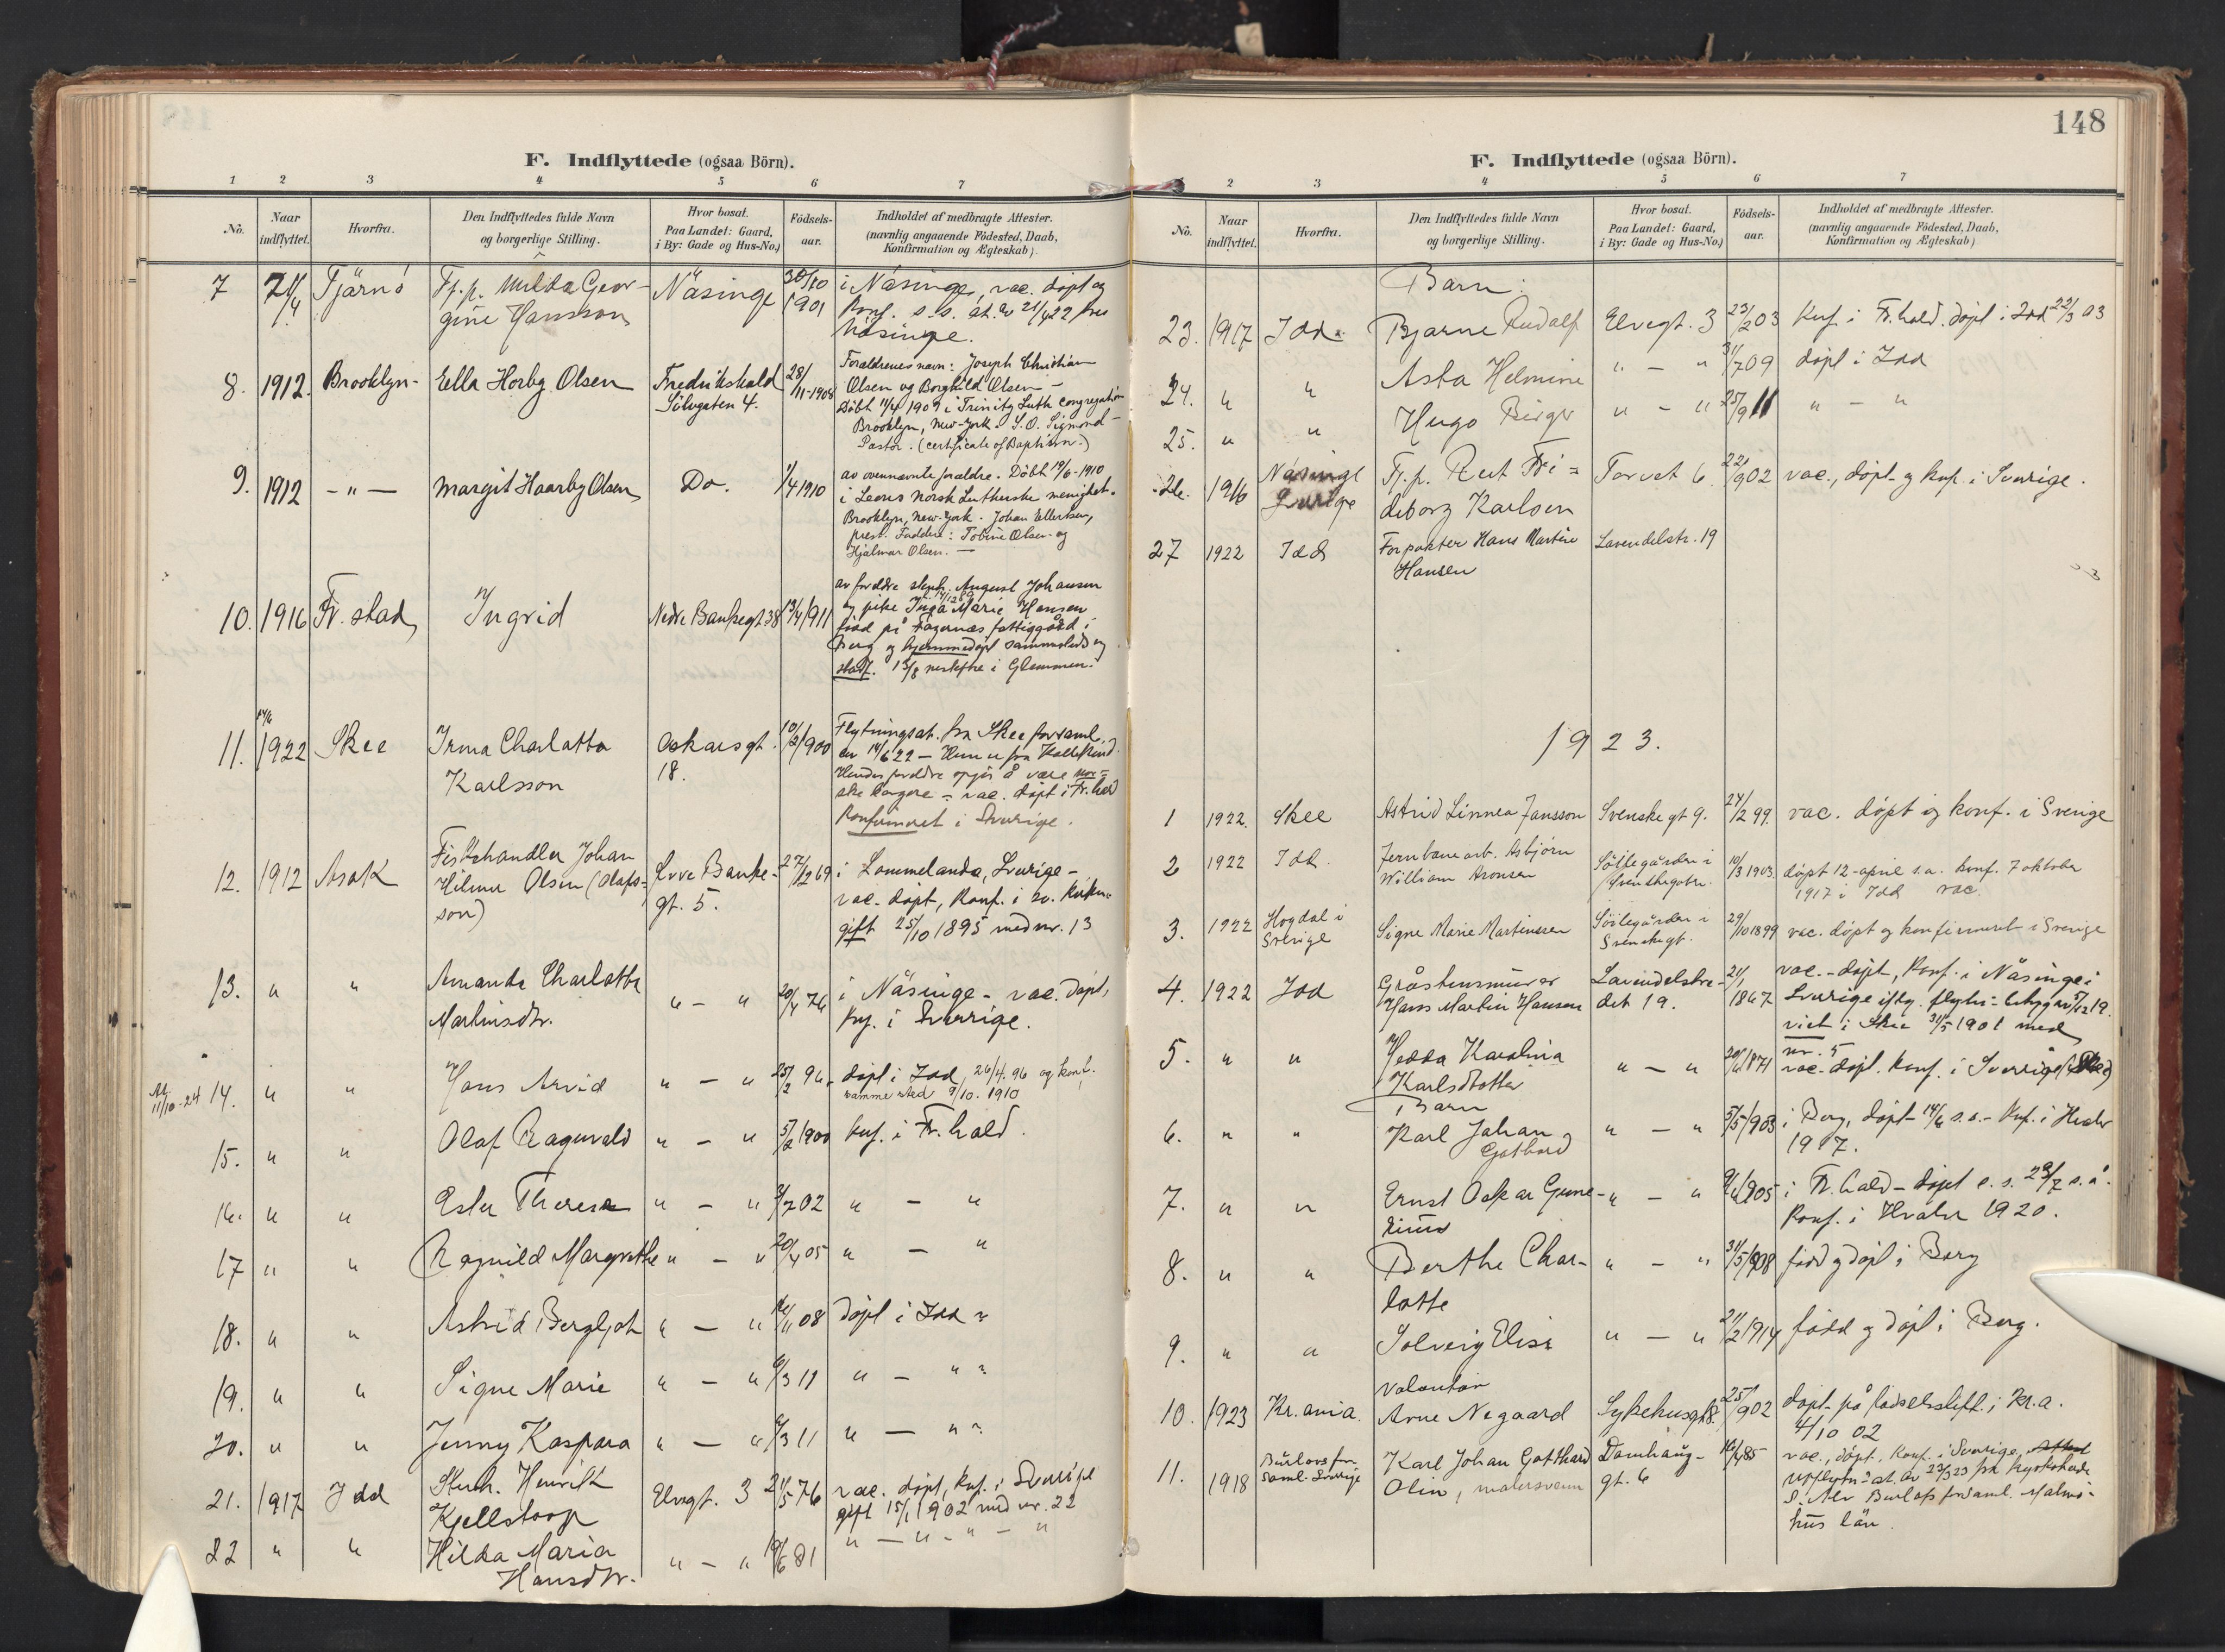 F. Indflyttede (ogsaa Börn).
1 2 3 4 5 6 7
No. Naar indflyttet. Hvorfra. Den Indflyttedes fulde Navn og borgerlige Stilling. Hvor bosat. Paa Landet: Gaard, i By: Gade og Hus-No.) Födsels-aar. Indholdet af medbragte Attester. (navnlig angaaende Födested, Daab, Konfirmation og Ægteskab).
7 21/4 Tjärnö Fj.p. Milda Geor- Näsinge 30/10 i Näsinge, vac. döpt og
gine Hansson 1901 konf. s.s. at. av 21/4 22 fra
Näsinge.
8. 1912. Brooklyn- Ella Horby Olsen Fredrikshald 28/11-1908 Forældrenes navn: Joseph Christian
Sölvgaten 4. Olsen og Borghild Olsen -
Döbt 11/4 1909 i Trinity Luth congregation
Brooklyn, New-York. S.O. Sigmond -
Pastor. (certificate of Baptism.)
9. 1912 - " - Margit Haarby Olsen Do. 1/4 1910 av ovennævnte forældre. Döbt 19/6-1910
i Leons Norsk Lutherske menighet.
Brooklyn, New-York. Johan Ellertsen,
prest. Faddere: Tobine Olsen og
Hjalmar Olsen. -
10. 1916 Fr.stad Ingrid Nedre Bankegt 38 13/4 1911 av foreldre August Johansen
og pike Inga Marie Hansen
född på Fagernæs fattiggård i
Berg og hjemmedöpt sammesteds og
stadf. 13/8 nestefter i Glemmen.
11. 14/6 1922 Skee Irma Charlotta Oskarsgt. 10/2 1900 Flytningsat. fra Skee forsaml.
Karlsson 18. av 14/6 22 - Hun er fra
Hendes foreldre opgis å være nor-
ske borgere - vac. döpt i Fr.hald
Konfirmeret i Sverige.
12. 1912 Asak Fiskehandler Johan Övre Banke- 27/12 69 i Lommelanda, Sverige -
Hilmer Olsen (Olafs- gt. 5. vac. döpt, konf. i sv. kirke
son) gift 25/10 1895 med nr. 13
13. " " Amanda Charlotta " - " 20/4 76 i Näsinge - vac. döpt,
Martinsdtr. konf. i Sverige.
11/10-24 14. " " Hans Arvid " - " 25/2 96 döpt i Idd 26/4. 96 og konf.
samme sted 9/10. 1910
15. " " Olaf Ragnvald " - " 5/2 1900 konf. i Fr.hald.
16. " " Ester Theresa " - " 02 " - "
17 " " Ragnild Margrethe " - " 20/4 05 " - "
18. " " Astrid Bergljot " - " 08 döpt i Idd
19. " " Signe Marie " - " 6/3 11 " - "
20. " " Jenny Kaspara " - " 6/3 11 " - "
21. 1917 Idd Stenh. Henrik Elvegt. 3 21/5 76 vac. döpt, konf. i Sverige
Kjellstorp gift 15/1 1902 med nr. 22
22 " " Hilda Maria " - " 19/6 81 " - " - " - "
Hansdtr.
148
F. Indflyttede (ogsaa Börn).
1 2 3 4 5 6 7
No. Naar indflyttet. Hvorfra. Den Indflyttedes fulde Navn og borgerlige Stilling. Hvor bosat. Paa Landet: Gaard, i By: Gade og Hus-No.) Födsels-aar. Indholdet af medbragte Attester. (navnlig angaaende Födested, Daab, Konfirmation og Ægteskab)
Barn:
23. 1917 Idd. Bjarne Rudolf Elvegt. 3 23/2 03 Konf. i Fr.hald. döpt i Idd 22/3 03
24. " " Asta Helmine " - " 31/7 09 döpt i Idd
25. " " Hugo Birger " - " 25/9 11 " - "
26. 1916 Näsinge Fj.p. Rut Fri- Torvet 6. 22/9 02 vac., döpt og konf. i Sverige.
Sverige deborg Karlsen
27 1922 Idd Forpakter Hans Martin Lavendelstr. 19
Hansen
1923.
1 1922. Skee Astrid Linnea Jansson Svenskegt 9. 24/2 99. vac. döpt og konf. i Sverige
2 1922 Idd. Jernbanearb. Asbjörn Söilegården i 10/3 1903. döpt 12 april s.a. konf. 7 oktober
William Aronsen Svenskegaten. 1917 i Idd vac.
3. 1922 Hogdal i Signe Marie Martinssen Söilegården i 29/10 1899 vac. döpt og konfirmert i Sverige
Sverige Svenskegt.
4. 1922 Idd Gråstensmurer Lavendelstre- 21/1 vac. döpt, konf. i Näsinge i
Hans Martin Hansen det 19. 1867 Sverige iflg. flytn. betyg av 5/12 19.
viet i Skee 31/5 1901 med
nr. 5
5. " " Hedda Karolina " - " 20/6 1871 vac. döpt. konf. i Sverige (Skee)
Karlsdotter
Barn
6. " " Karl Johan " - " 5/5 1903 i Berg, döpt 14/6 s.a. - konf. i Hvaler
Gothard 1917.
7. " " Ernst Oskar Gune- " - " 1905 i Fr.hald - döpt s.s. 23/7 s.å.
rius Konf. i Hvaler 1920.
8. " " Berthe Char- " - " 31/5 1908 född og döpt i Berg
lotte
9. " " Solveig Elise " - " 21/2 1914 född og döpt i Berg.
Volontör
10. 1923 Kr.ania. Arne Negaard Sykehusgt 8. 25/ 1902 döpt på födselsstift. i Kr.a.
4/10 02
11. 1918 Burlovs for- Karl Johan Gotthard Damhaug- 85 vac., döpt, konf. i Sverige,
saml. Sverige Olin, malersvenn gt. 6 at. av 23/3 23 fra kyrkoherde
S. Alv Burlofs forsaml. Malmö-
hus län.